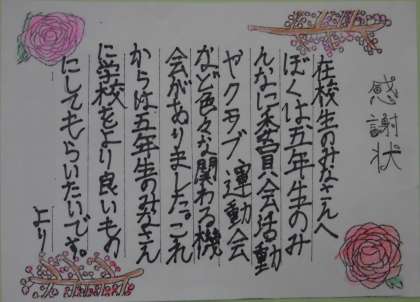 感謝状
在校生のみなさんへ
ぼくは、五年生のみ
んなには委員会活動
やクラブ、運動会
など色々な関わる機
会がありました。これ
からは五年生のみなさん
に学校をより良いもの
にしてもらいたいです。
より